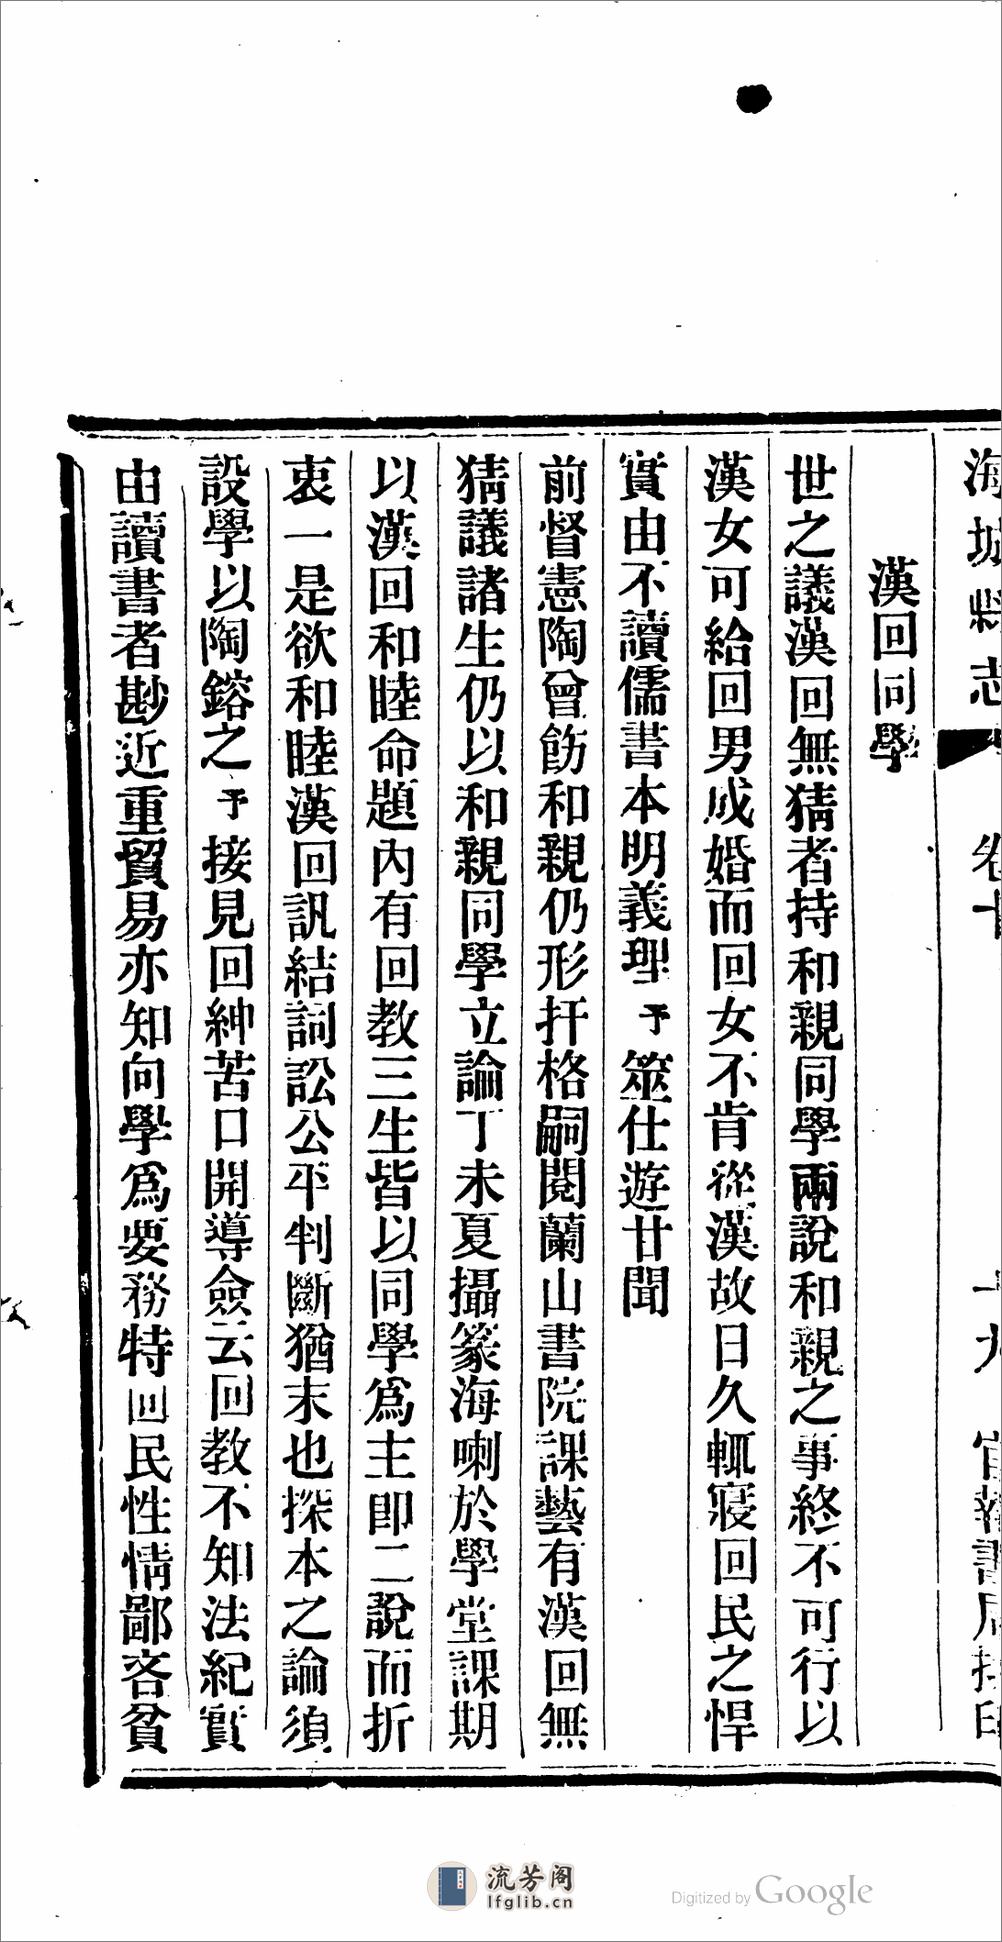 海城縣志 卷十 十九 官報書局排印
漢回同學
世之議漢回無猜者持和親同學兩說和親之事終不可行以
漢女可給回男成婚而回女不肯從漢故日久輒寢回民之悍
實由不讀儒書本明義理予筮仕遊甘聞
前督憲陶曾飭和親仍形扞格嗣閱蘭山書院課藝有漢回無
猜議諸生仍以和親同學立論丁未夏攝篆海喇於學堂課期
以漢回和睦命題內有回教三生皆以同學爲主卽二說而折
衷一是欲和睦漢回訊結詞訟公平判斷猶末也探本之論須
設學以陶鎔之予接見回紳苦口開導僉云回教不知法紀實
由讀書者尠近重貿易亦知向學爲要務特回民性情鄙吝貧
流芳阁
lfglib.cn
Digitized by Google